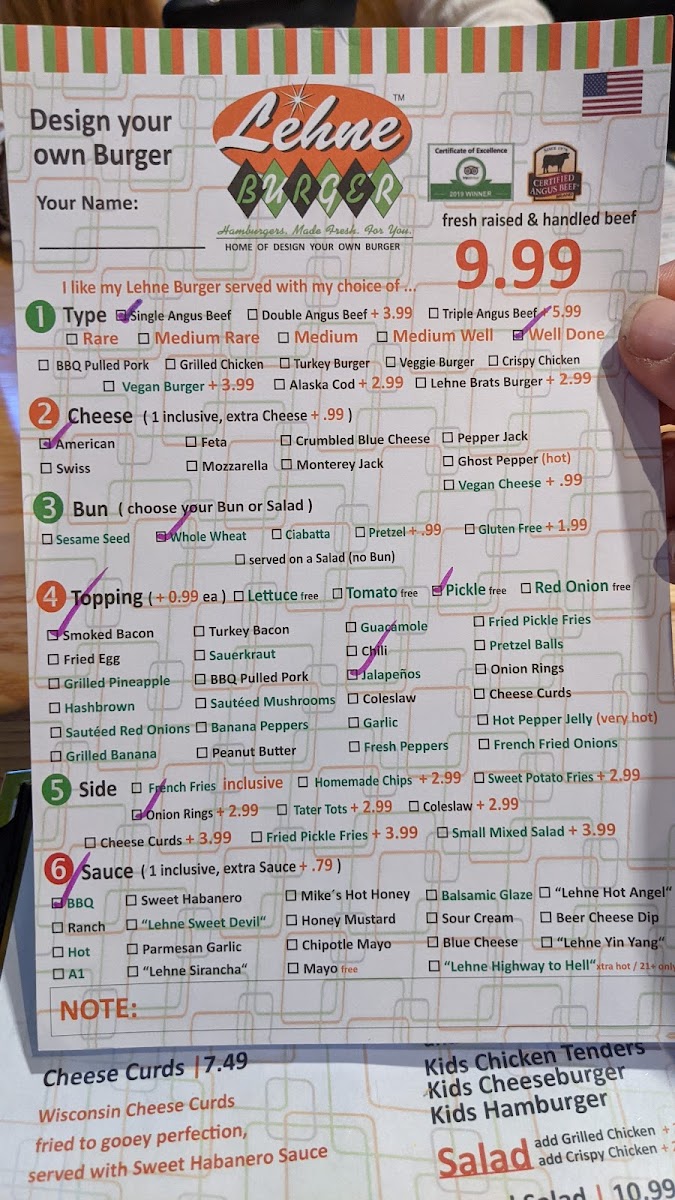 Design your
own Burger
Your Name:
Lehne TM
BURGER
Hamburgers, Made Fresh. For You.
HOME OF DESIGN YOUR OWN BURGER
Certificate of Excellence
2019 WINNER
CERTIFIED
ANGUS BEEF
fresh raised & handled beef
9.99
I like my Lehne Burger served with my choice of ...
1 Type ☑ Single Angus Beef ☐ Double Angus Beef + 3.99 ☐ Triple Angus Beef + 5.99
☐ Rare ☐ Medium Rare ☐ Medium ☐ Medium Well ☑ Well Done
☐ BBQ Pulled Pork ☐ Grilled Chicken ☐ Turkey Burger ☐ Veggie Burger ☐ Crispy Chicken
☐ Vegan Burger + 3.99 ☐ Alaska Cod + 2.99 ☐ Lehne Brats Burger + 2.99
2 Cheese ( 1 inclusive, extra Cheese + .99 )
☑ American ☐ Feta ☐ Crumbled Blue Cheese ☐ Pepper Jack
☐ Swiss ☐ Mozzarella ☐ Monterey Jack ☐ Ghost Pepper (hot)
☐ Vegan Cheese + .99
3 Bun ( choose your Bun or Salad )
☐ Sesame Seed ☑ Whole Wheat ☐ Ciabatta ☐ Pretzel + .99 ☐ Gluten Free + 1.99
☐ served on a Salad (no Bun)
4 Topping ( + 0.99 ea ) ☐ Lettuce free ☐ Tomato free ☑ Pickle free ☐ Red Onion free
☑ Smoked Bacon ☐ Turkey Bacon ☐ Guacamole ☐ Fried Pickle Fries
☐ Fried Egg ☐ Sauerkraut ☐ Chili ☐ Pretzel Balls
☐ Grilled Pineapple ☐ BBQ Pulled Pork ☑ Jalapeños ☐ Onion Rings
☐ Hashbrown ☐ Sautéed Mushrooms ☐ Coleslaw ☐ Cheese Curds
☐ Sautéed Red Onions ☐ Banana Peppers ☐ Garlic ☐ Hot Pepper Jelly (very hot)
☐ Grilled Banana ☐ Peanut Butter ☐ Fresh Peppers ☐ French Fried Onions
5 Side ☐ French Fries inclusive ☐ Homemade Chips + 2.99 ☐ Sweet Potato Fries + 2.99
☑ Onion Rings + 2.99 ☐ Tater Tots + 2.99 ☐ Coleslaw + 2.99
☐ Cheese Curds + 3.99 ☐ Fried Pickle Fries + 3.99 ☐ Small Mixed Salad + 3.99
6 Sauce ( 1 inclusive, extra Sauce + .79 )
☑ BBQ ☐ Sweet Habanero ☐ Mike´s Hot Honey ☐ Balsamic Glaze ☐ "Lehne Hot Angel"
☐ Ranch ☐ "Lehne Sweet Devil" ☐ Honey Mustard ☐ Sour Cream ☐ Beer Cheese Dip
☐ Hot ☐ Parmesan Garlic ☐ Chipotle Mayo ☐ Blue Cheese ☐ "Lehne Yin Yang"
☐ A1 ☐ "Lehne Sirancha" ☐ Mayo free ☐ "Lehne Highway to Hell" xtra hot / 21+ only
NOTE:
Cheese Curds | 7.49
Wisconsin Cheese Curds
fried to gooey perfection,
served with Sweet Habanero Sauce
Kids Chicken Tenders
Kids Cheeseburger
Kids Hamburger
Salad add Grilled Chicken +
add Crispy Chicken +
Salad | 10.99